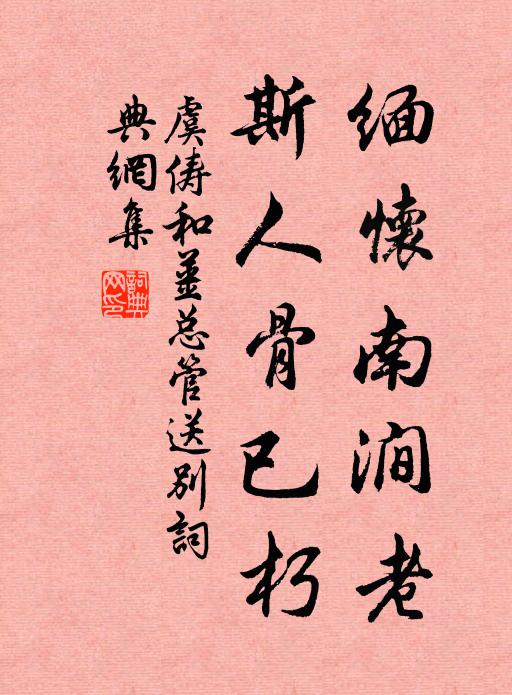 緬懷南澗老
斯人骨已朽
虞儔和姜总管送別詞
典網集
詞典網印